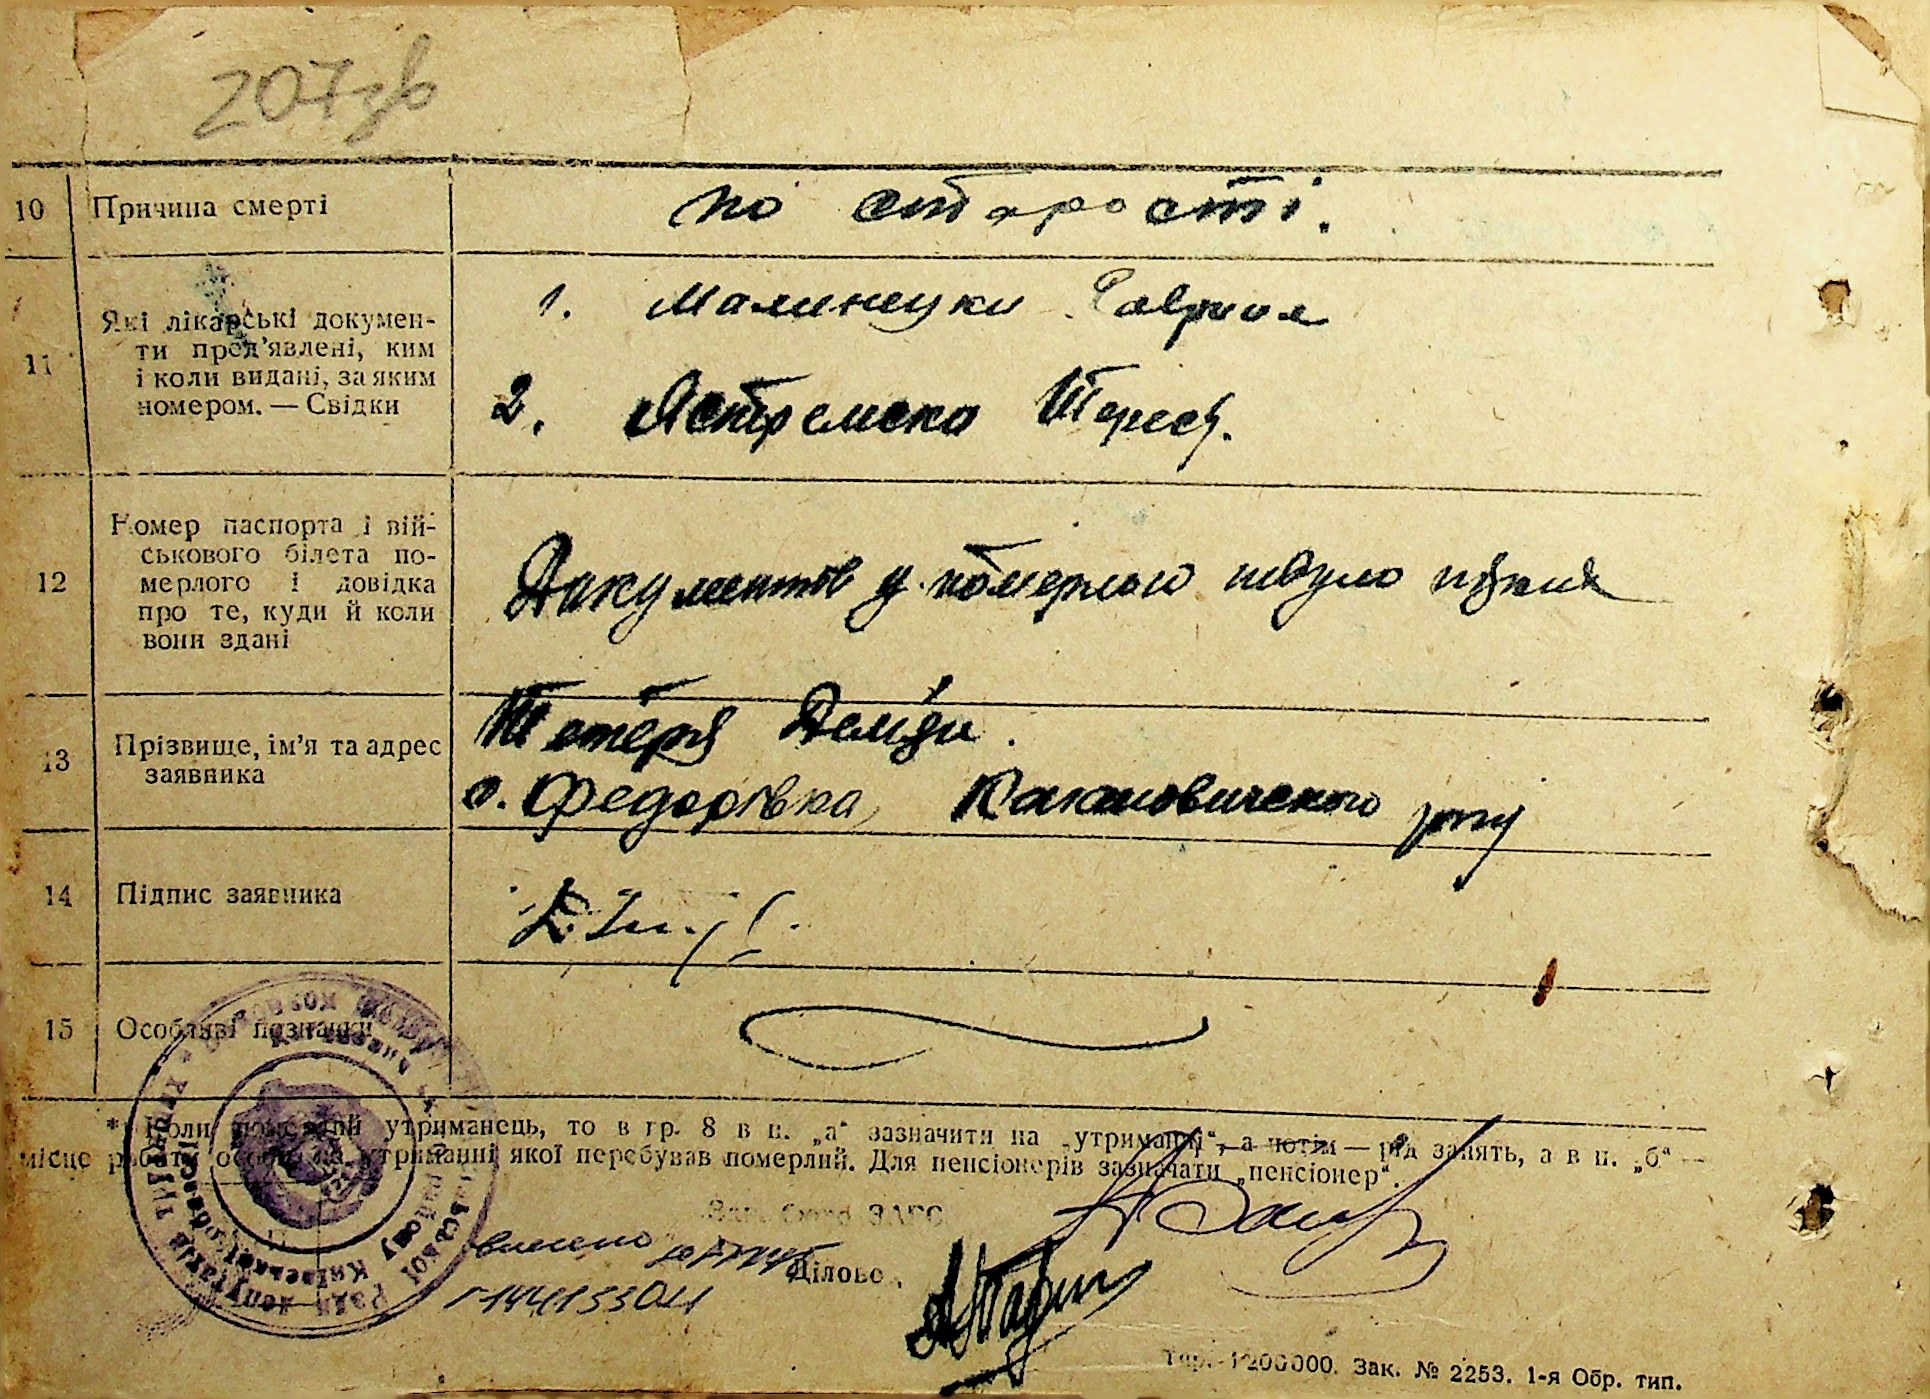 207зв
10 Причина смерті по старості.
11 Які лікарські докумен-
ти пред'явлені, ким
і коли видані, за яким
номером. — Свідки
1. Малинецки
2. Тереся.
12 Номер паспорта і вій-
ськового білета по-
мерлого і довідка
про те, куди й коли
вони здані
Документов у померлого
13 Прізвище, ім'я та адрес
заявника
Тетеря Деміди.
с. Федорівка, Кагановичского рну
14 Підпис заявника
15 Особливі позначки
* Коли утриманець, то в гр. 8 в п. „а" зазначити на „утриманні", а потім — рід занять, а в п. „б" —
місце роботи особи, на утриманні якої перебував померлий. Для пенсіонерів зазначати „пенсіонер".
Зав. Бюро ЗАГС
внесено
Діловод
Тир. 1200000. Зак. № 2253. 1-я Обр. тип.